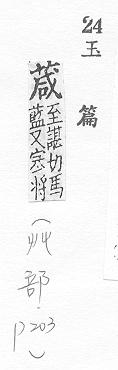 24
玉篇
葴
至諶切馬
藍又寒將
(艸部.
p203)